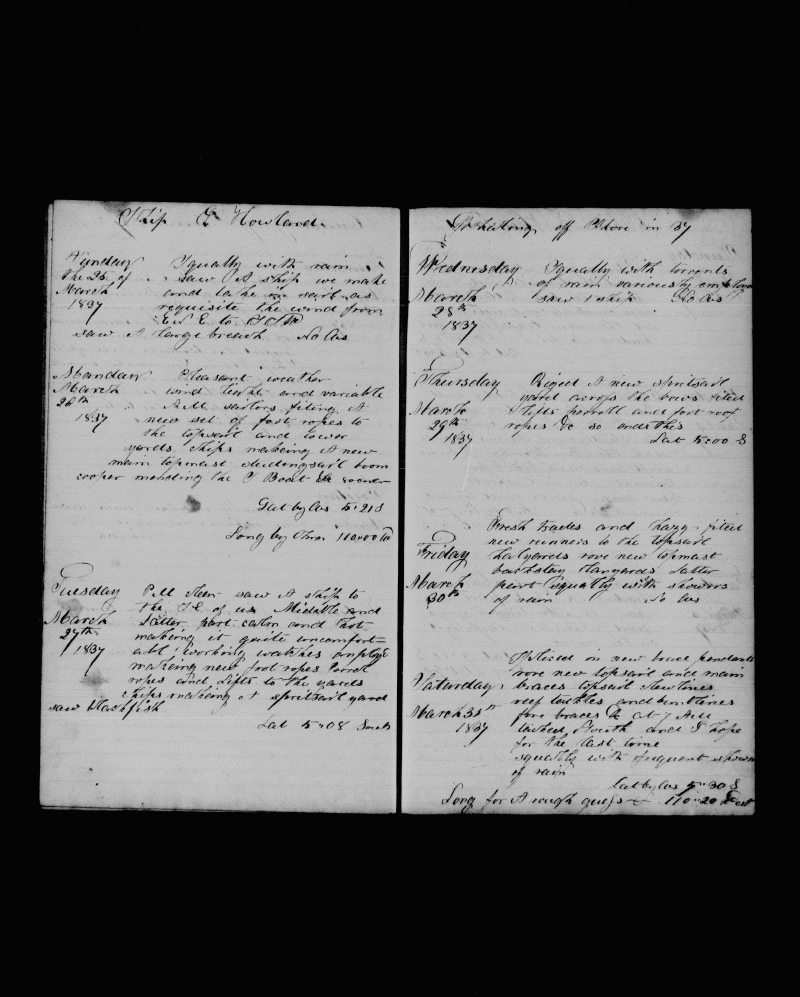 Ship G Howland
Sunday Squally with rain
the 25 of saw A ship we make
March and take in sail as
1837 requisite the wind from
E N E to
saw A large breach No Obs
Monday Pleasant weather
March wind light and variable
26th All sailors fiting A
1837 new set of foot ropes to
the topsail and lower
yards Chips making A new
main topmast studingsail boom
cooper mending the Boat
Lat by Obs 5"21 S
Long by Chrn 110"00 W
Tuesday P M Clear saw A ship to
the S E of us Middle and
March Latter part calm and hot
27th making it quite uncomfort=
1837 able working watches employd
making new foot ropes
ropes and Lifts to the yards
Chips making A spritsail yard
saw blackfish
Lat 5"08 South
Whaleing off Shore in 37
Wednesday Squally with torrents
of rain variously employed
March saw 1 ship No Obs
28th
1837
Thursday Riged A new spritsail
yard across the bows fited
March Lifts parrell and foot
29th ropes &c so ends this
1837 Lat 5"00 S
Fresh trades and hazy fited
new runners to the topsail
Friday halyards rove new topmast
backstay lanyards latter
March part squally with showers
30th of rain No Obs
Spliced in new brace pendants
rove new topsail and main
Saturday braces topsail clewlines
reef tackles and buntlines
March 31st fore braces &c at 7 AM
1837 tacked South and I hope
for the last time
squally with frequent showers
of rain
Lat by Obs 5"30 S
Long for A rough guess 110"20 West